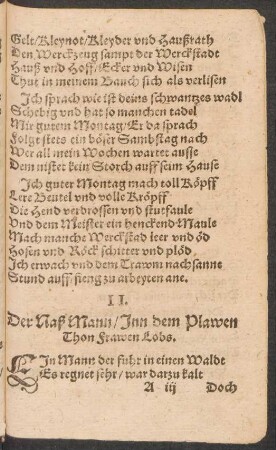 Gelt/Kleynot/Kleyder vnd Haußrath
Den Werckzeug sampt der Werckstadt
Hauß vnd Hoff/Ecker vnd Wisen
Thut in meinem Bauch sich als verlisen
Jch sprach wie ist deins schwantzes wadl
Schebig vnd hat so manchen tadel
Mir gutem Montag/Er da sprach
Folgt stets ein böser Sambstag nach
Wer all mein Wochen wartet auss
Dem nistet kein Storch auff seim Hause
Jch guter Montag mach toll Köpff
Lere Beutel vnd volle Kröpff
Die Hend verdrossen vnd stutfaule
Vnd dem Meister ein henckend Maule
Mach manche Werckstad leer vnd öd
Hosen vnd Röck schitter vnd plöd
Jch erwach vnd dem Trawm nachsanne
Stund auff fieng zu arbeyten ane.
II.
Der Naß Mann/Jnn dem Plawen
Thon Frawen Lobs.
EJn Mann der fuhr in einen Waldt
Es regnet sehr/war darzu kalt
A iij Doch